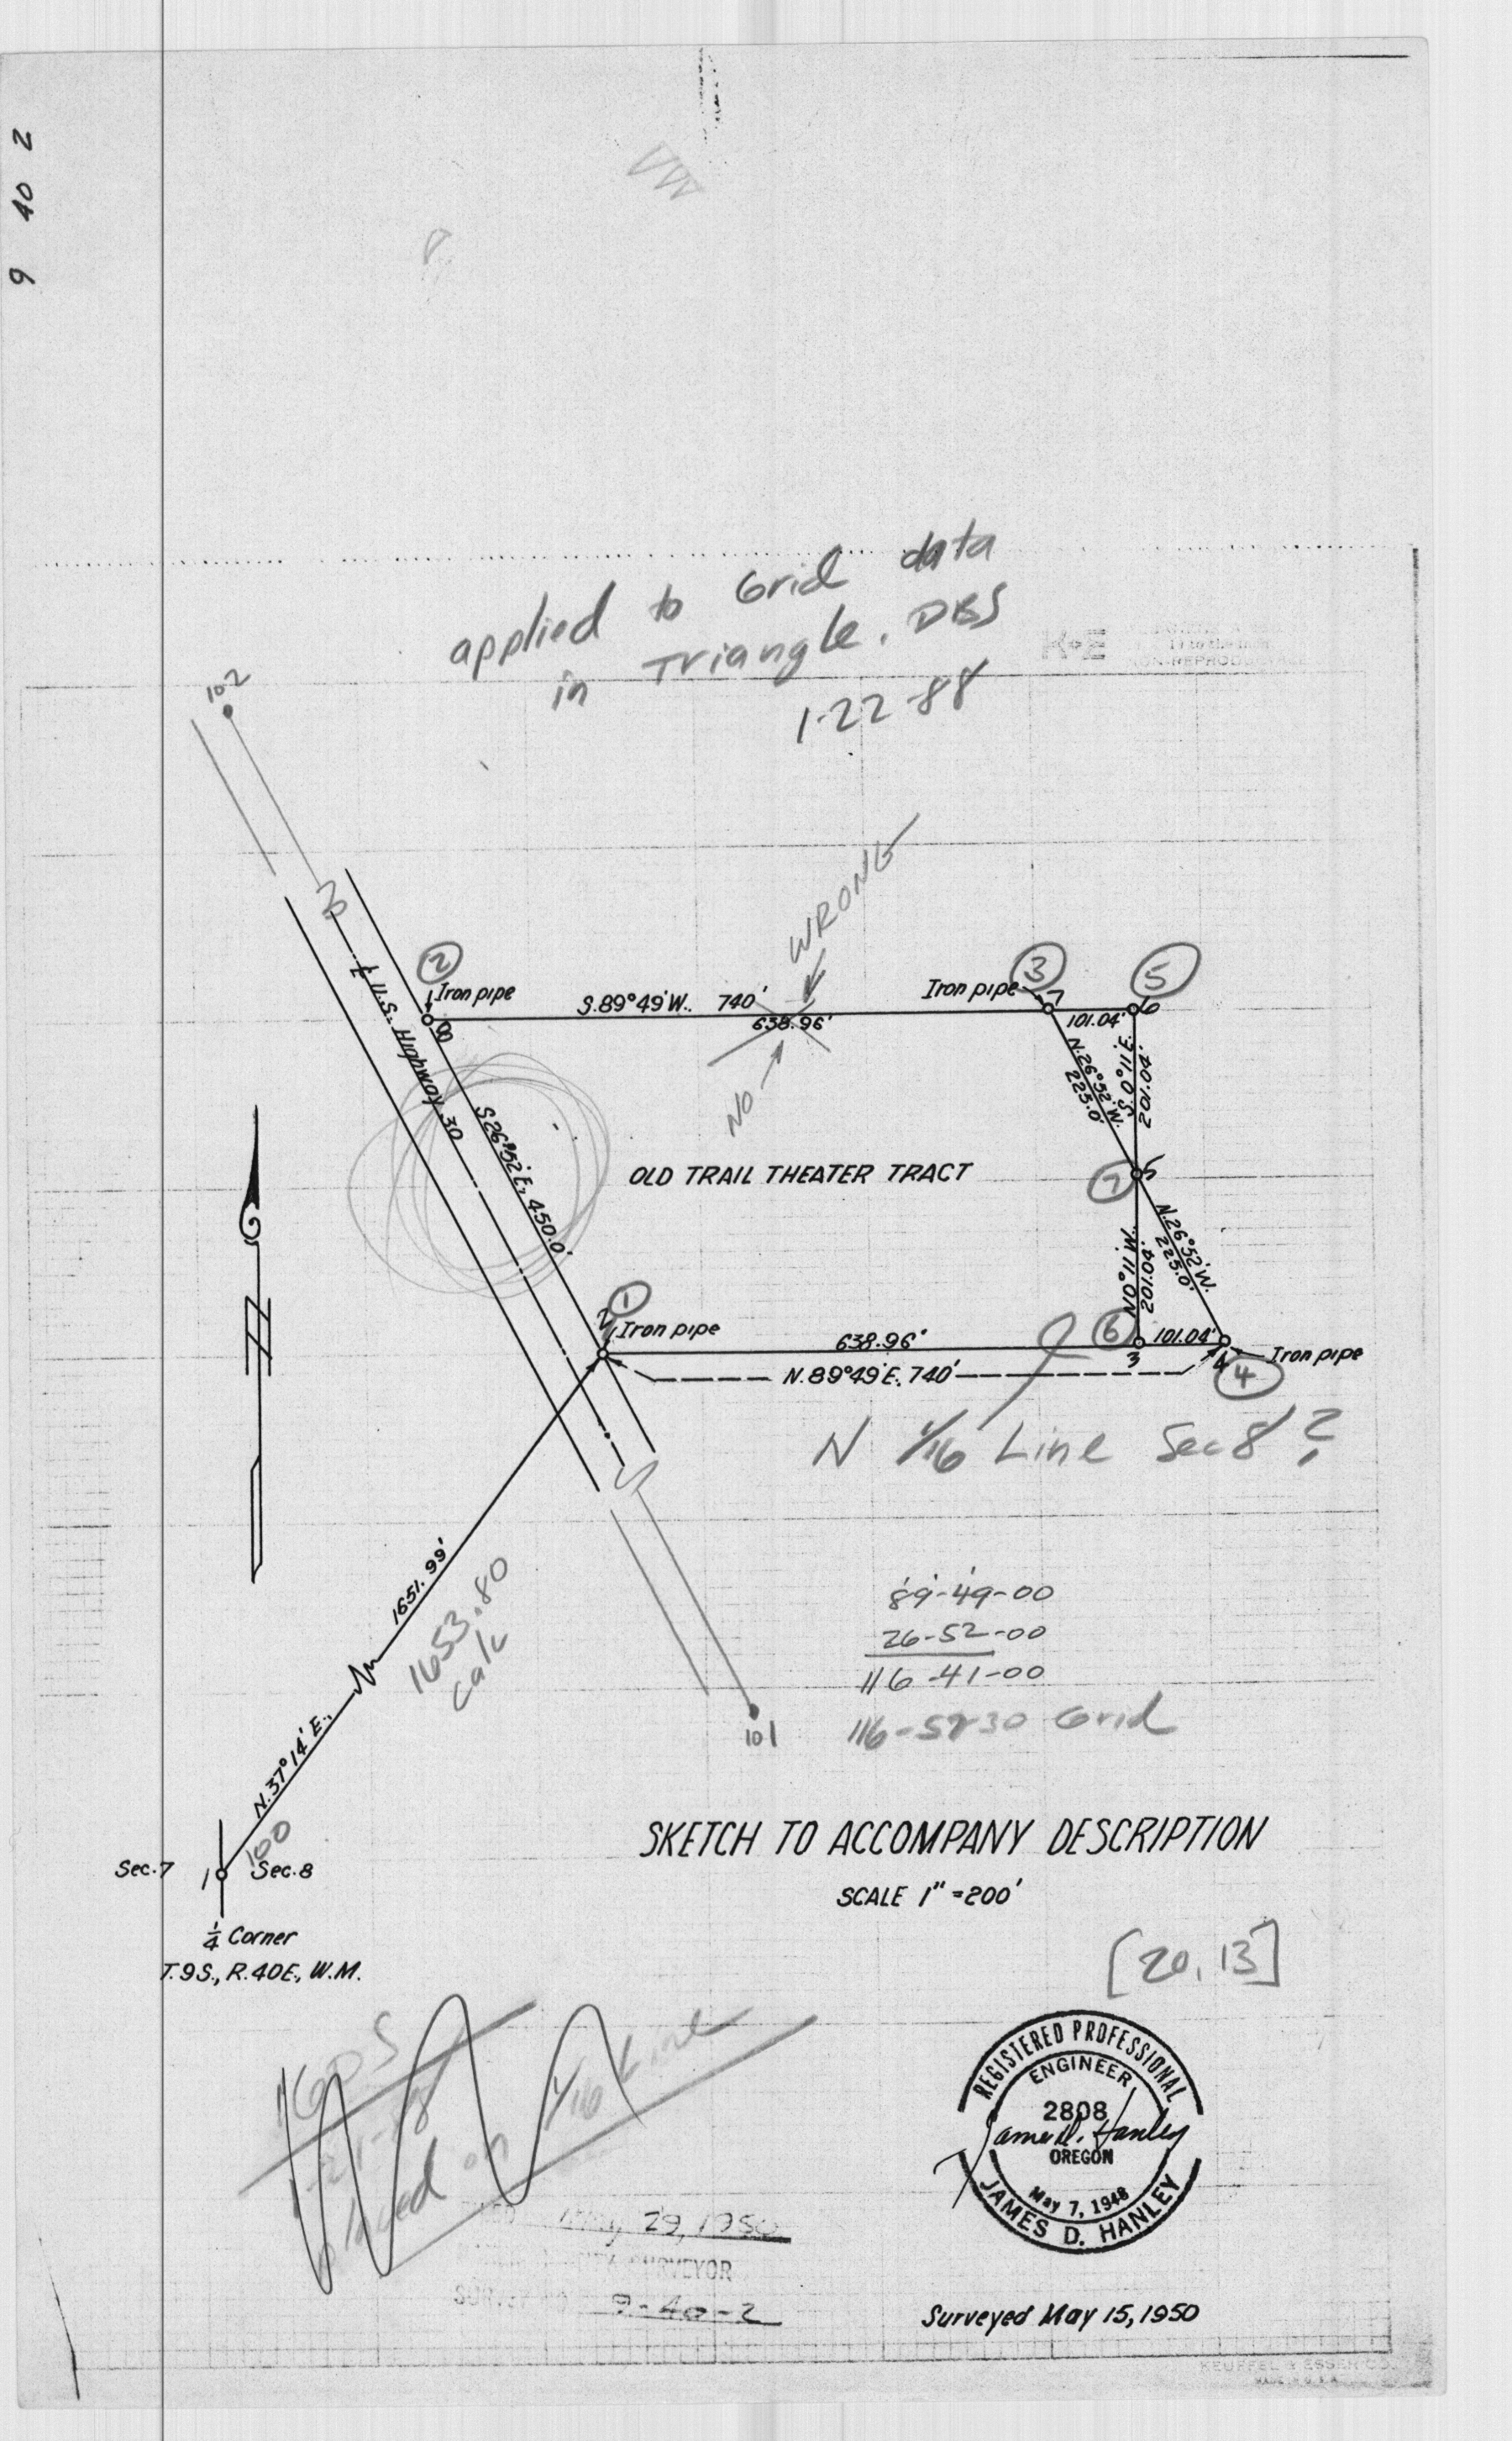 9 40 2
applied to Grid data
in Triangle. DBS
1-22-88
K+E
102
WRONG
2
Iron pipe
8
S.89°49'W. 740'
638.96'
NO
Iron pipe
3
7
5
6
101.04'
N.26°52'W.
225.0'
S.0°11'E.
201.04'
℄ U.S. Highway 30
S26°52'E, 450.0'
OLD TRAIL THEATER TRACT
7
5
N0°11'W.
201.04'
N.26°52'W.
225.0'
1
2
Iron pipe
638.96'
6
3
101.04'
4
Iron pipe
4
N.89°49'E. 740'
N 1/16 Line Sec 8 ?
1651.99'
1653.80
calc
N.37°14'E.,
100
89-49-00
26-52-00
116-41-00
116-5230 Grid
101
Sec.7
1
Sec.8
1/4 Corner
T.9S., R.40E., W.M.
SKETCH TO ACCOMPANY DESCRIPTION
SCALE 1" = 200'
[20, 13]
on 1/16 Line
REGISTERED PROFESSIONAL
ENGINEER
2808
James D. Hanley
OREGON
May 7, 1948
JAMES D. HANLEY
May 29, 1950
SURVEYOR
9-40-2
Surveyed May 15, 1950
KEUFFEL & ESSER CO.